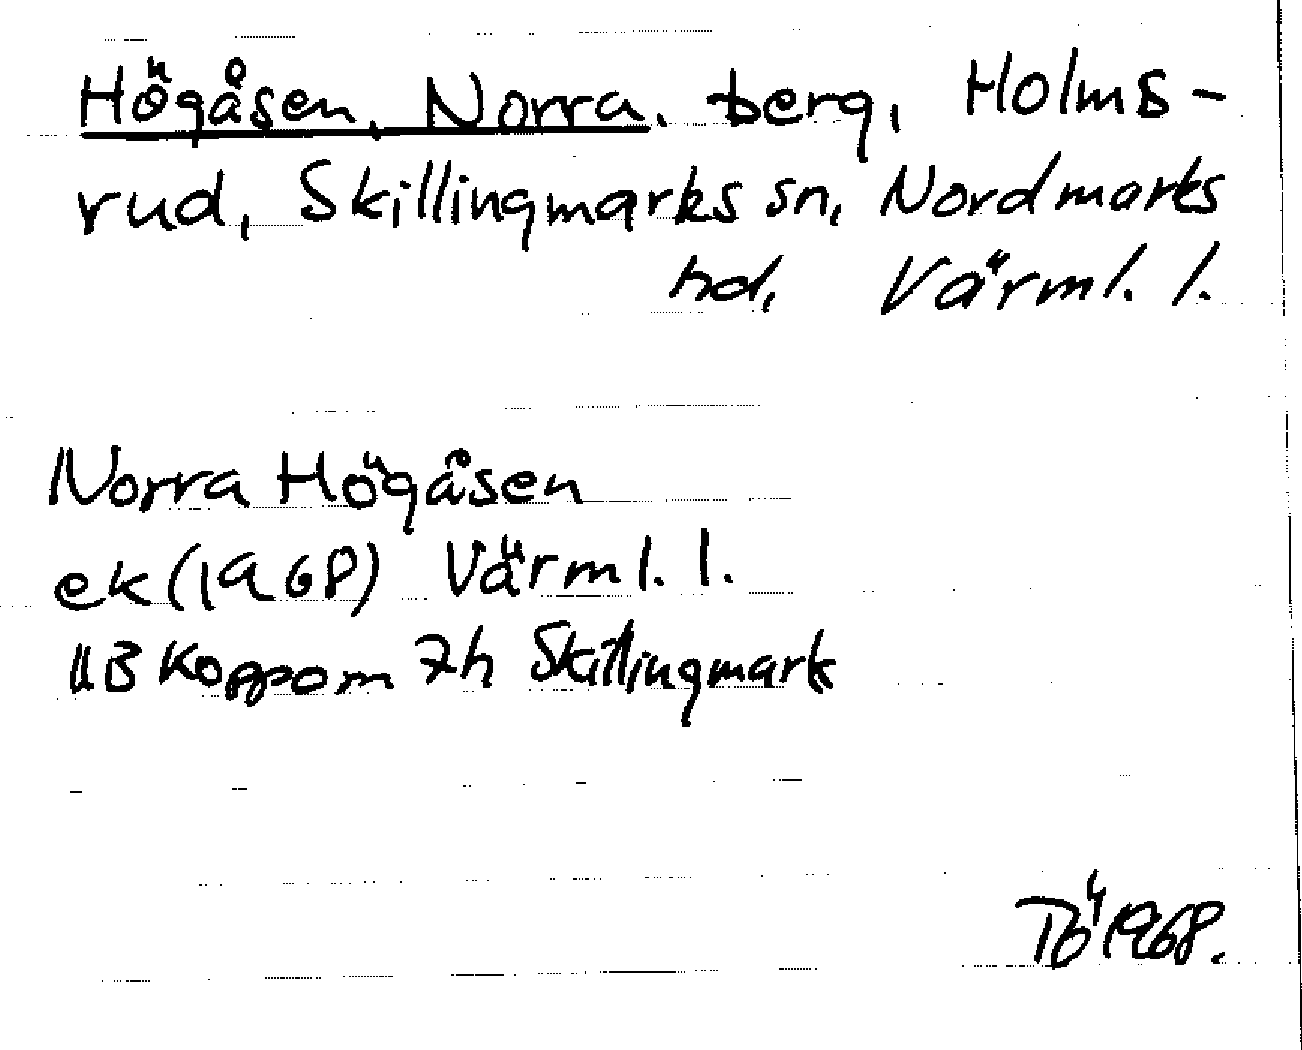 Högåsen, Norra, berg, Holms-
rud, Skillingmarks sn, Nordmarks
hd, Värml. l.
Norra Högåsen
ek (1968) Värml. l.
11B Koppom 7h Skillingmark
TÖ 1968.